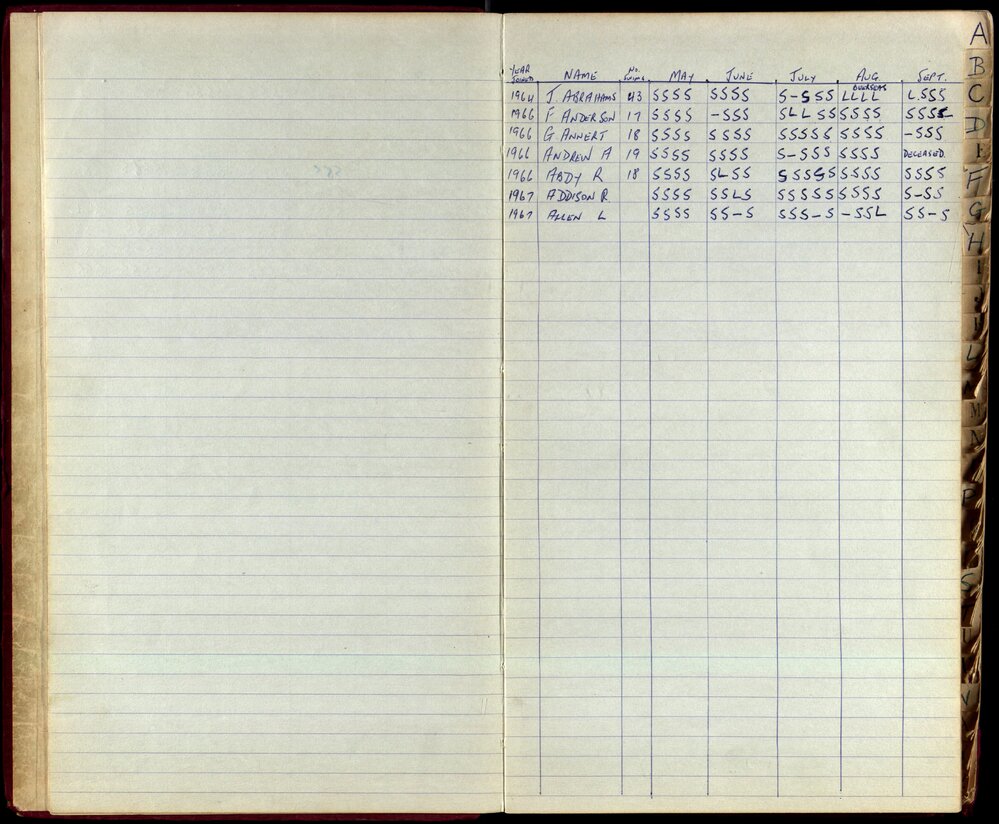 YEAR JOINED NAME No. SWIMS MAY JUNE JULY AUG. SEPT.
1964 J. ABRAHAMS 43 SSSS SSSS S-SSS OVERSEAS LLLL L.SSS
1966 F ANDERSON 17 SSSS -SSS SLLSS SSSS SSSS
1966 G ANNERT 18 SSSS SSSS SSSSS SSSS -SSS
1966 ANDREW A 19 SSSS SSSS S-SSS SSSS DECEASED.
1966 ABDY R 18 SSSS SLSS SSSSS SSSS SSSS
1967 ADDISON R SSSS SSLS SSSSS SSSS S-SS
1967 ALLEN L SSSS SS-S SSS-S -SSL SS-S
A
B
C
D
E
F
G
H
I
J
L
M
N
P
S
U
V